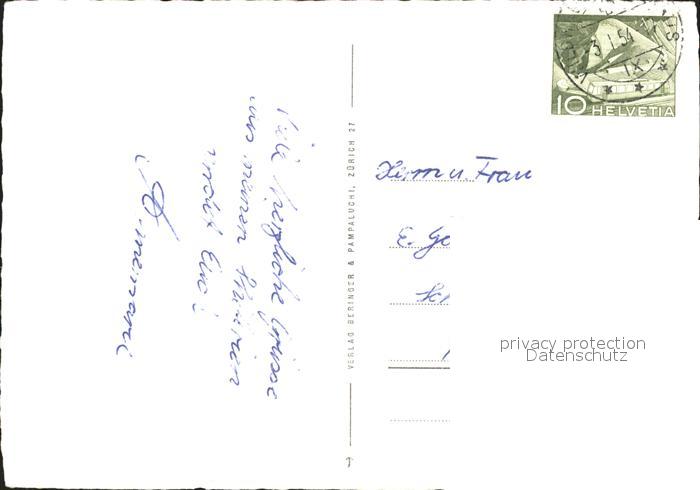 Viele herzliche Grüsse
aus meinen Skiferien
sendet Euch
Annemarie
VERLAG BERINGER & PAMPALUCHI, ZÜRICH 27
3.I.54
IX
10 HELVETIA
Herrn u. Frau
E. Ge
Sch
privacy protection
Datenschutz